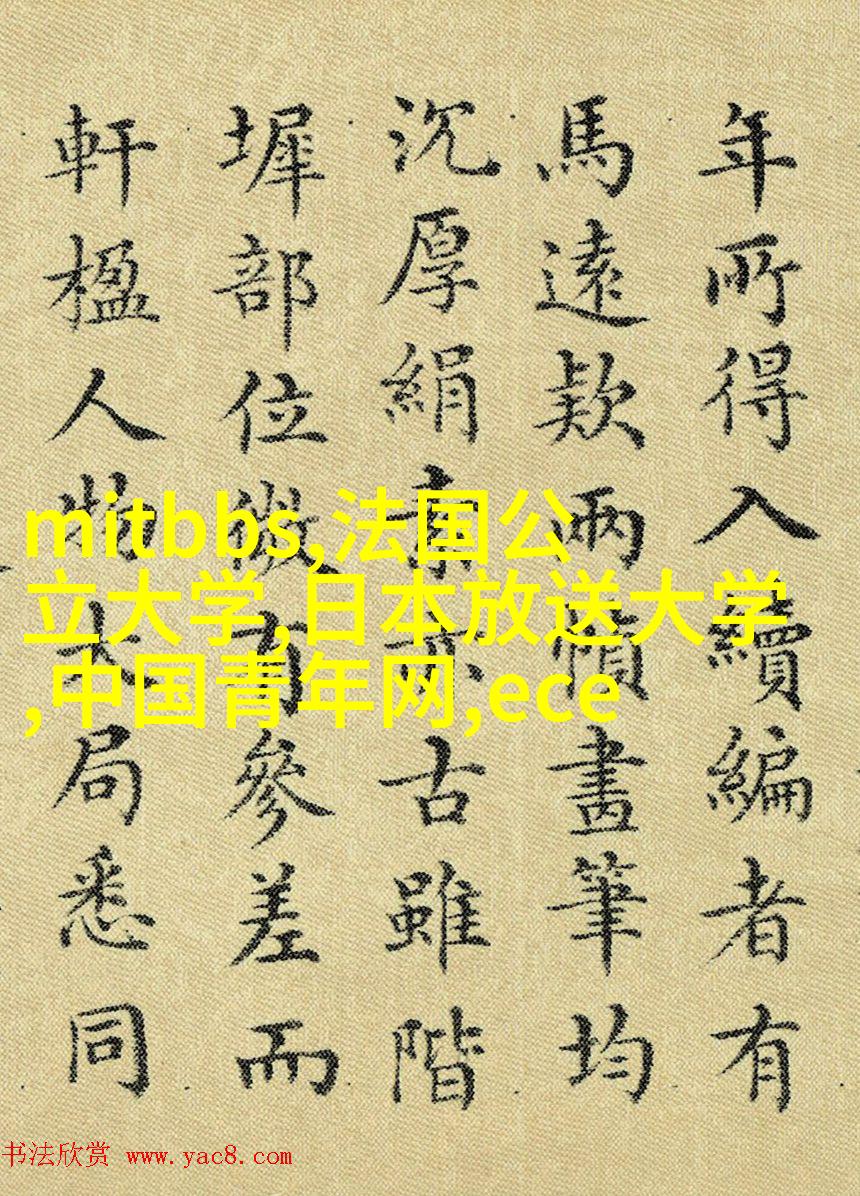 年所得入續編者有
馬遠款兩幀畫筆均
沉厚絹素亦古雖階
墀部位微有參差而
軒楹人物大局悉同
mitbbs,法国公
立大学,日本放送大学
,中国青年网,ece
书法欣赏 www.yac8.com